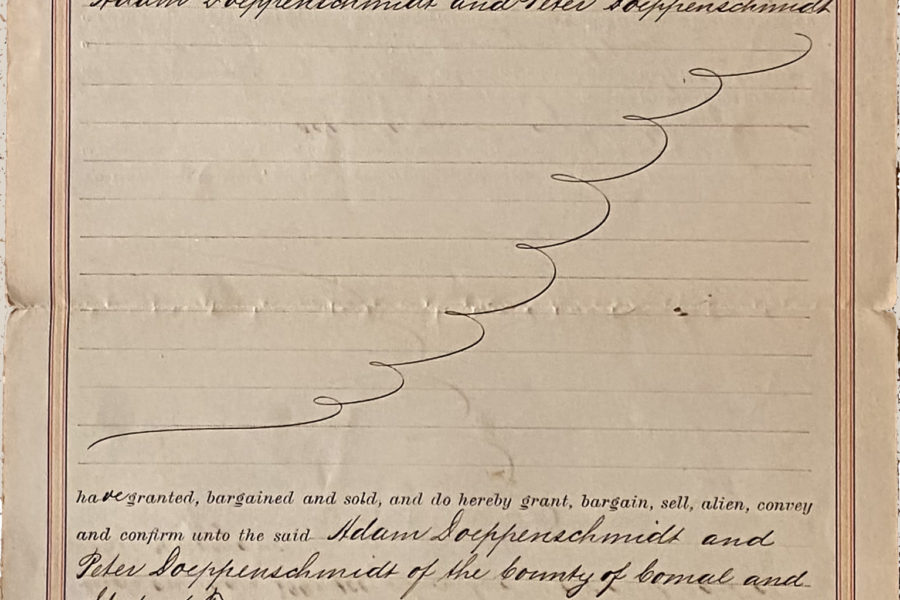 Adam Doeppenschmidt and Peter Doeppenschmidt
have granted, bargained and sold, and do hereby grant, bargain, sell, alien, convey
and confirm unto the said Adam Doeppenschmidt and
Peter Doeppenschmidt of the County of Comal and